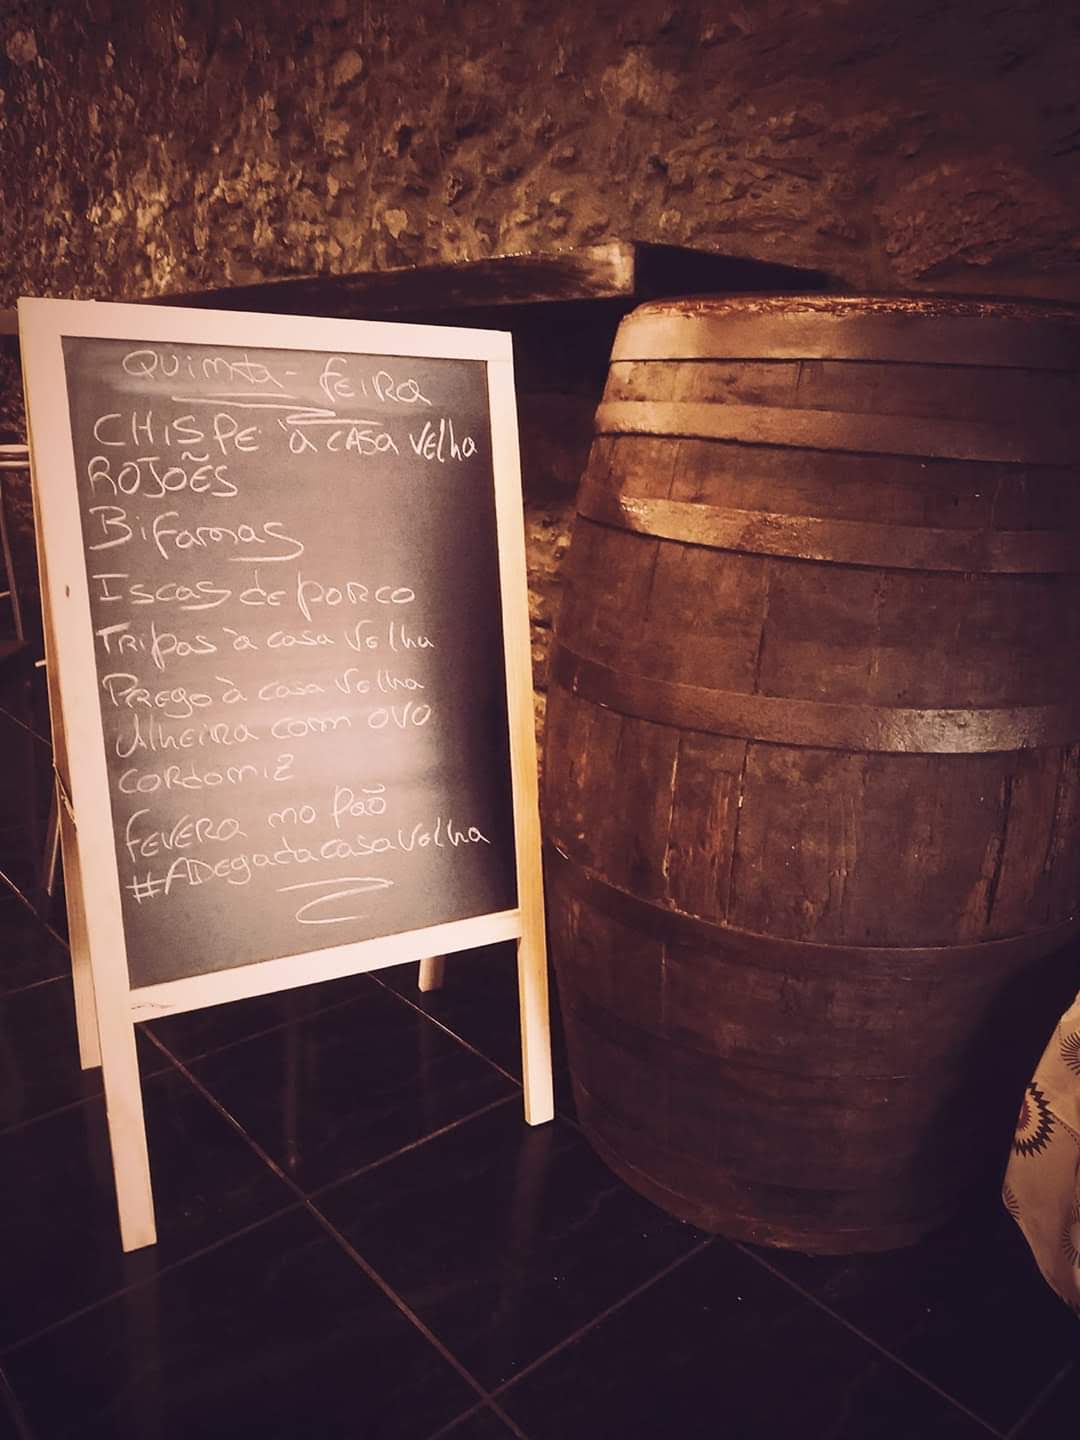 Quinta-feira
CHISPE à CASA Velha
ROJÕES
Bifanas
Iscas de porco
Tripas à casa Velha
Prego à casa Velha
Alheira com ovo
CORdorniz
fevera no pão
#ADegadacasavelha